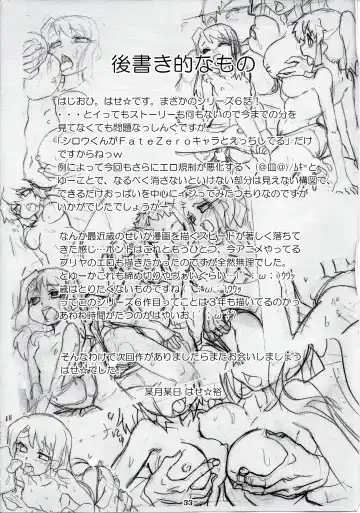 後書き的なもの
はじおひ。はせ☆です。まさかのシリーズ6話！
・・・とイってもストーリーも何もないので今までの分を
見てなくても問題なっしんぐですが。
「シロウくんがFateZeroキャラとえっちしてる」だけ
ですからねっw
例によって今回もさらにエロ規制が悪化するべ(@皿@)ﾑｷｰと
ゆーことで、なるべく消さないといけない部分は見えない構図で、
できるだけおっぱいを中心にイジってみたつもりなのですが
いかがでしたでしょうかー。
なんか最近歳のせいか漫画を描くスピードが著しく落ちて
きた感じ…ホントはこれともうひとつ、今アニメやってる
プリヤのエロも描きたかったですが全然無理でした。
とゆーかこれも締め切りやヴぁいくらい
歳はとりたくないものですね
そしてこのシリーズ6作目ってことは3年も描いてるのかっ
あわわ時間がたつのがはやいお(´;ω;`)
そんなわけで次回作がありましたらまたお会いしましょう
はせ☆でした。
某月某日 はせ☆裕
33